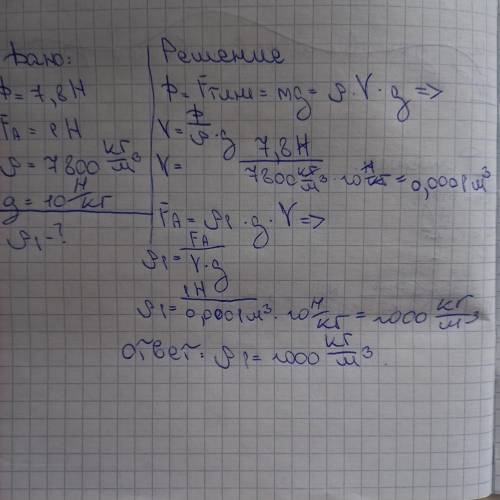 Дано:
P = 7,8 Н
F_A = 1 Н
ρ = 7800 кг/м³
g = 10 Н/кг
ρ₁ - ?
Решение
P = Fтяж = mg = ρ · V · g =>
V = P/ρ · g
V = 7,8 Н / 7800 кг/м³ · 10 Н/кг = 0,0001 м³
F_A = ρ₁ · g · V =>
ρ₁ = F_A / V · g
ρ₁ = 1 Н / 0,0001 м³ · 10 Н/кг = 1000 кг/м³
Ответ: ρ₁ = 1000 кг/м³.